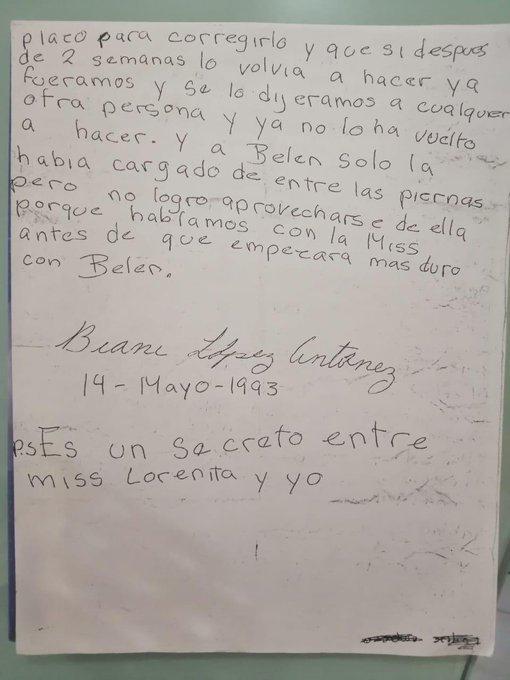 placo para corregirlo y que si despues
de 2 semanas lo volvia a hacer ya
fueramos y se lo dijeramos a cualquier
otra persona y ya no lo ha vuelto
a hacer. y a Belen solo la
habia cargado de entre las piernas
pero no logro aprovecharse de ella
porque hablamos con la Miss
antes de que empezara mas duro
con Belen.
Biani López Antúnez
14-Mayo-1993
P.S Es un secreto entre
miss Lorenita y yo